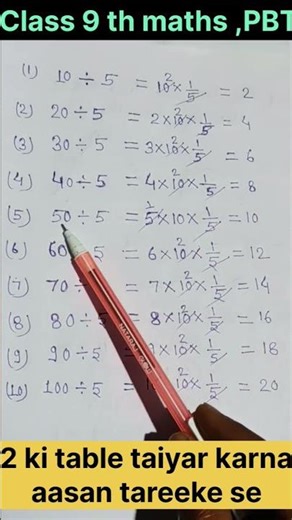 Class 9 th maths ,PBT
(1) 10 ÷ 5 = 10 2 × 1/5 = 2
(2) 20 ÷ 5 = 2 × 10 2 × 1/5 = 4
(3) 30 ÷ 5 = 3 × 10 2 × 1/5 = 6
(4) 40 ÷ 5 = 4 × 10 2 × 1/5 = 8
(5) 50 ÷ 5 = 5 1 × 10 × 1/5 = 10
(6) 60 ÷ 5 = 6 × 10 2 × 1/5 = 12
(7) 70 ÷ = 7 × 10 2 × 1/5 = 14
(8) 80 ÷ 5 = 8 × 10 2 × 1/5 = 16
(9) 90 ÷ 5 = × 10 2 × 1/5 = 18
(10) 100 ÷ 5 = 10 2 × 1/5 = 20
NATARAJ
2 ki table taiyar karna
aasan tareeke se